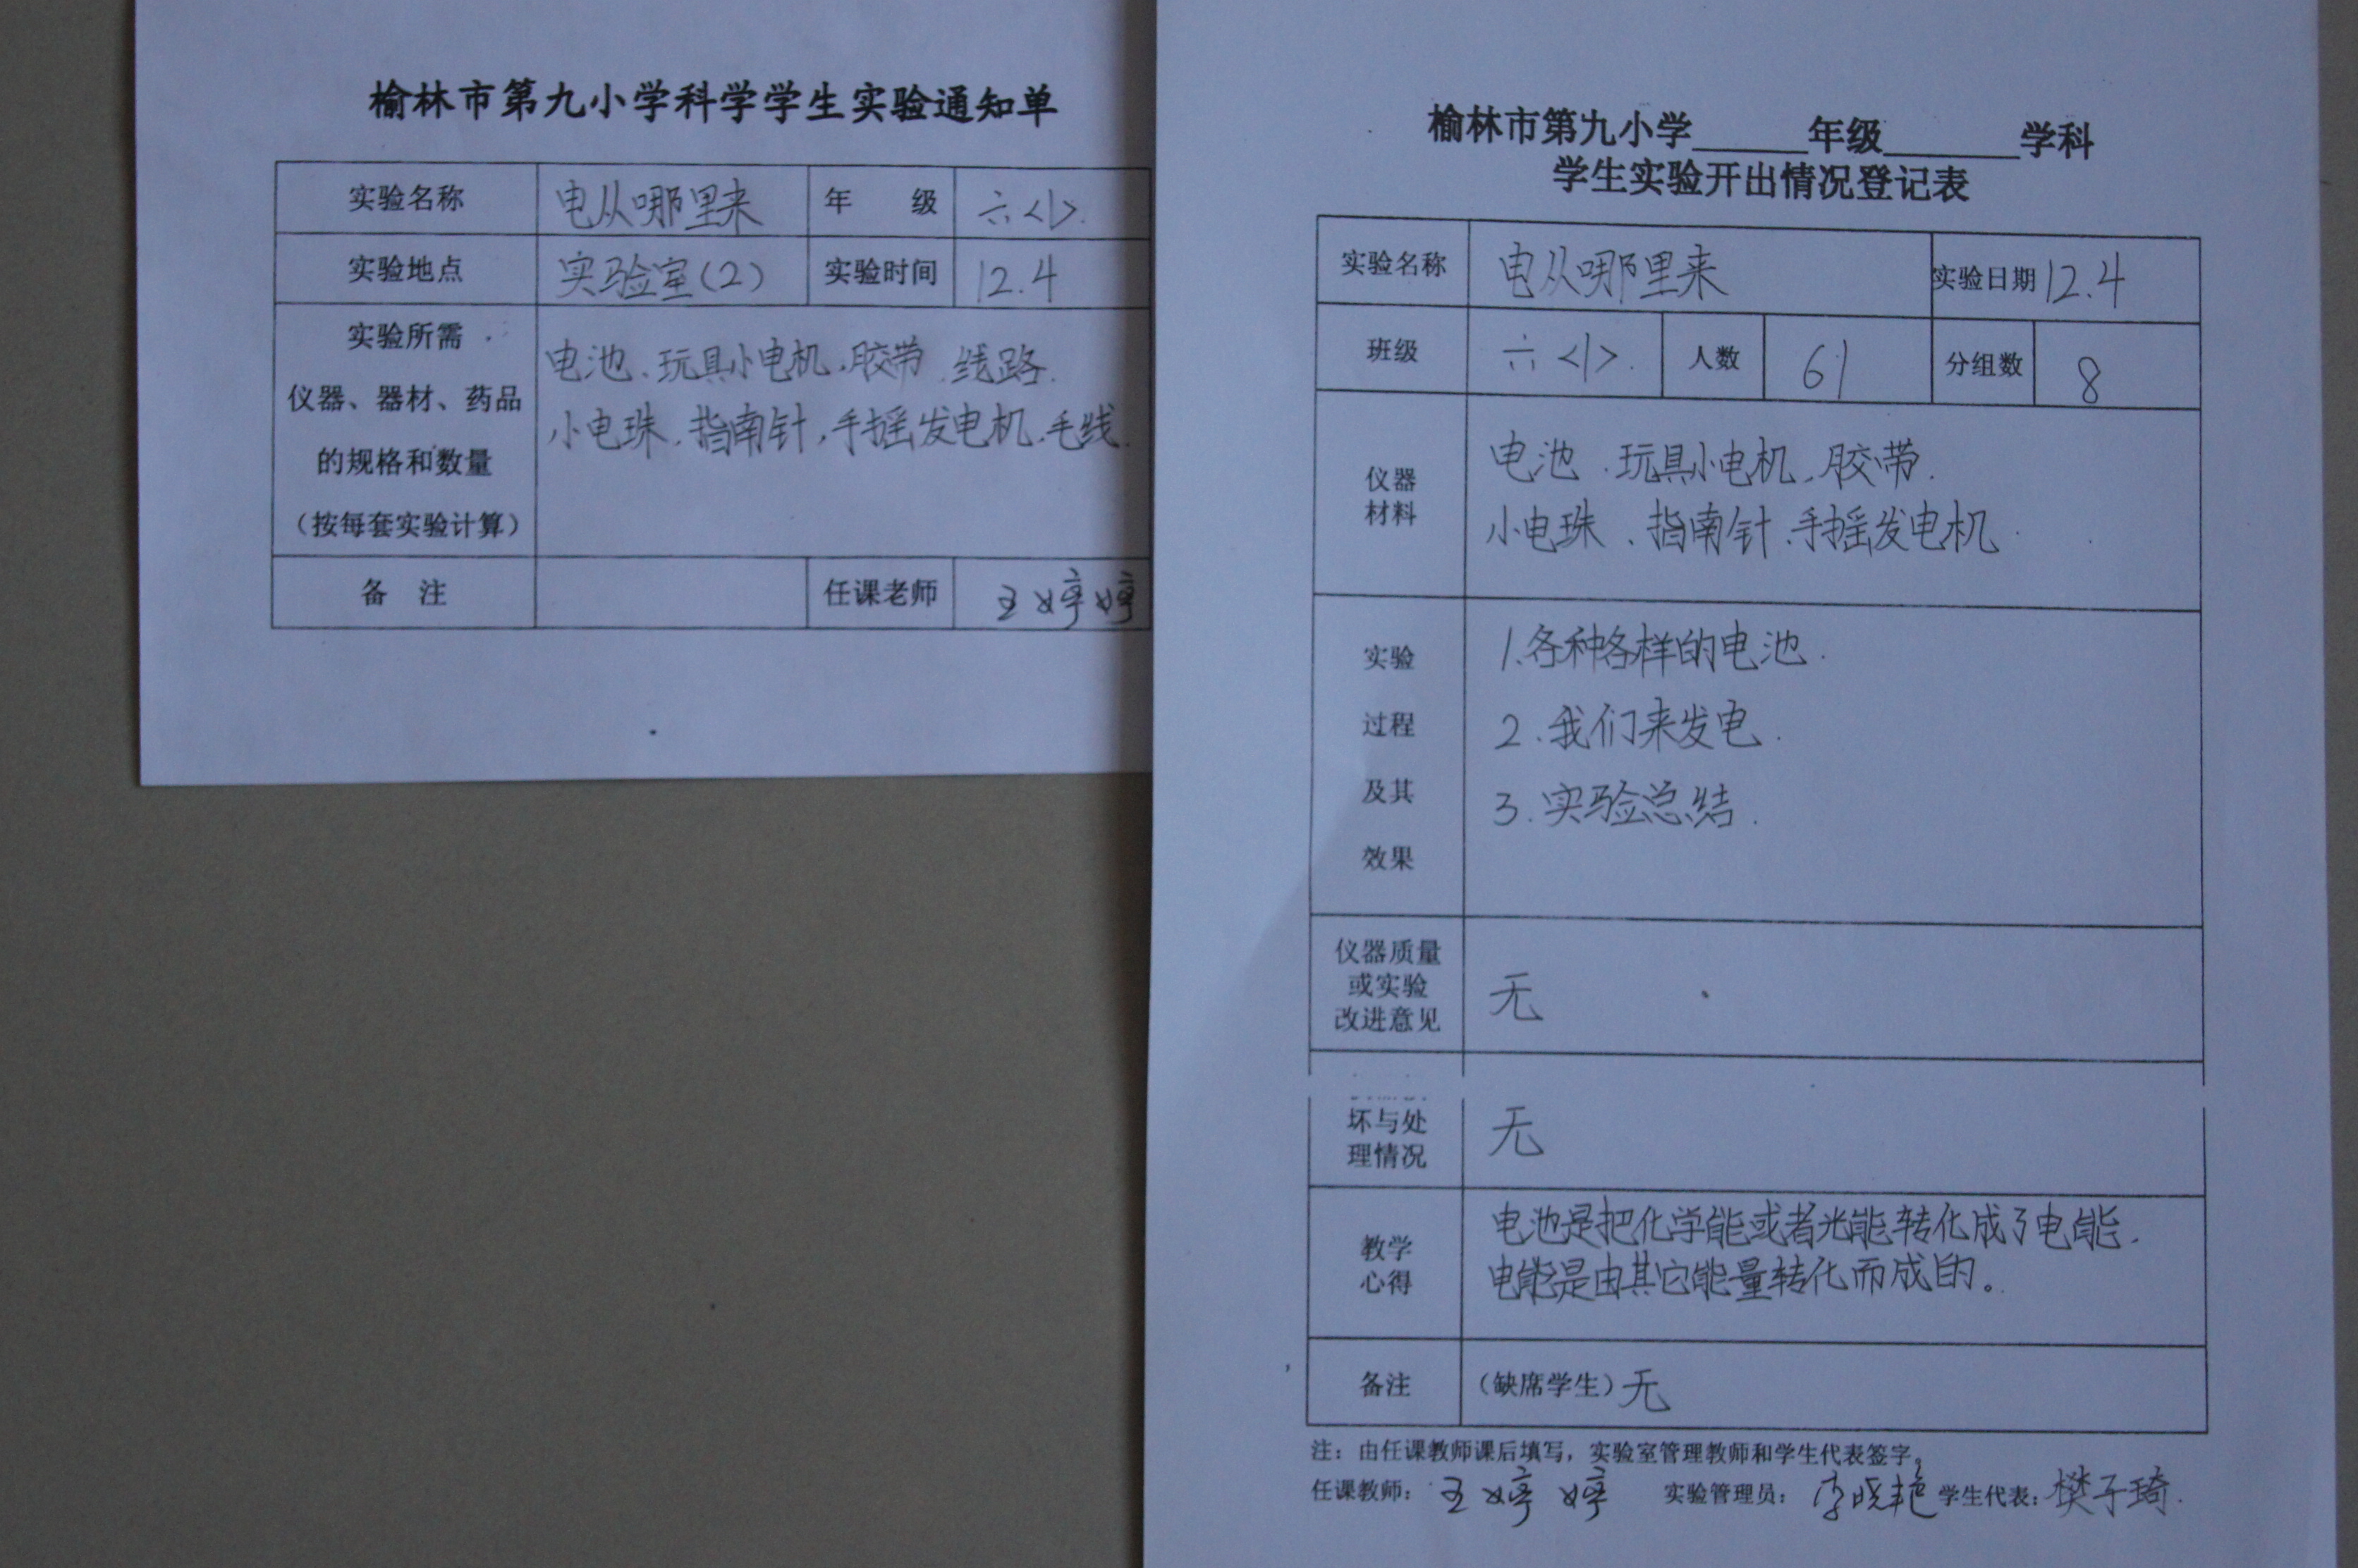 榆林市第九小学科学学生实验通知单
实验名称 电从哪里来 年 级 六<1>.
实验地点 实验室(2) 实验时间 12.4
实验所需
仪器、器材、药品
的规格和数量
（按每套实验计算）
电池、玩具小电机,胶带.线路.
小电珠.指南针,手摇发电机.毛线.
备 注 任课老师 王婷婷
榆林市第九小学______年级_______学科
学生实验开出情况登记表
实验名称 电从哪里来 实验日期 12.4
班级 六<1>. 人数 61 分组数 8
仪器
材料
电池.玩具小电机.胶带.
小电珠、指南针.手摇发电机.
实验
过程
及其
效果
1.各种各样的电池.
2.我们来发电.
3.实验总结.
仪器质量
或实验
改进意见
无
坏与处
理情况
无
教学
心得
电池是把化学能或者光能转化成了电能.
电能是由其它能量转化而成的。
备注 （缺席学生）无
注：由任课教师课后填写，实验室管理教师和学生代表签字。
任课教师：王婷婷 实验管理员：李晓艳 学生代表：樊子琦.